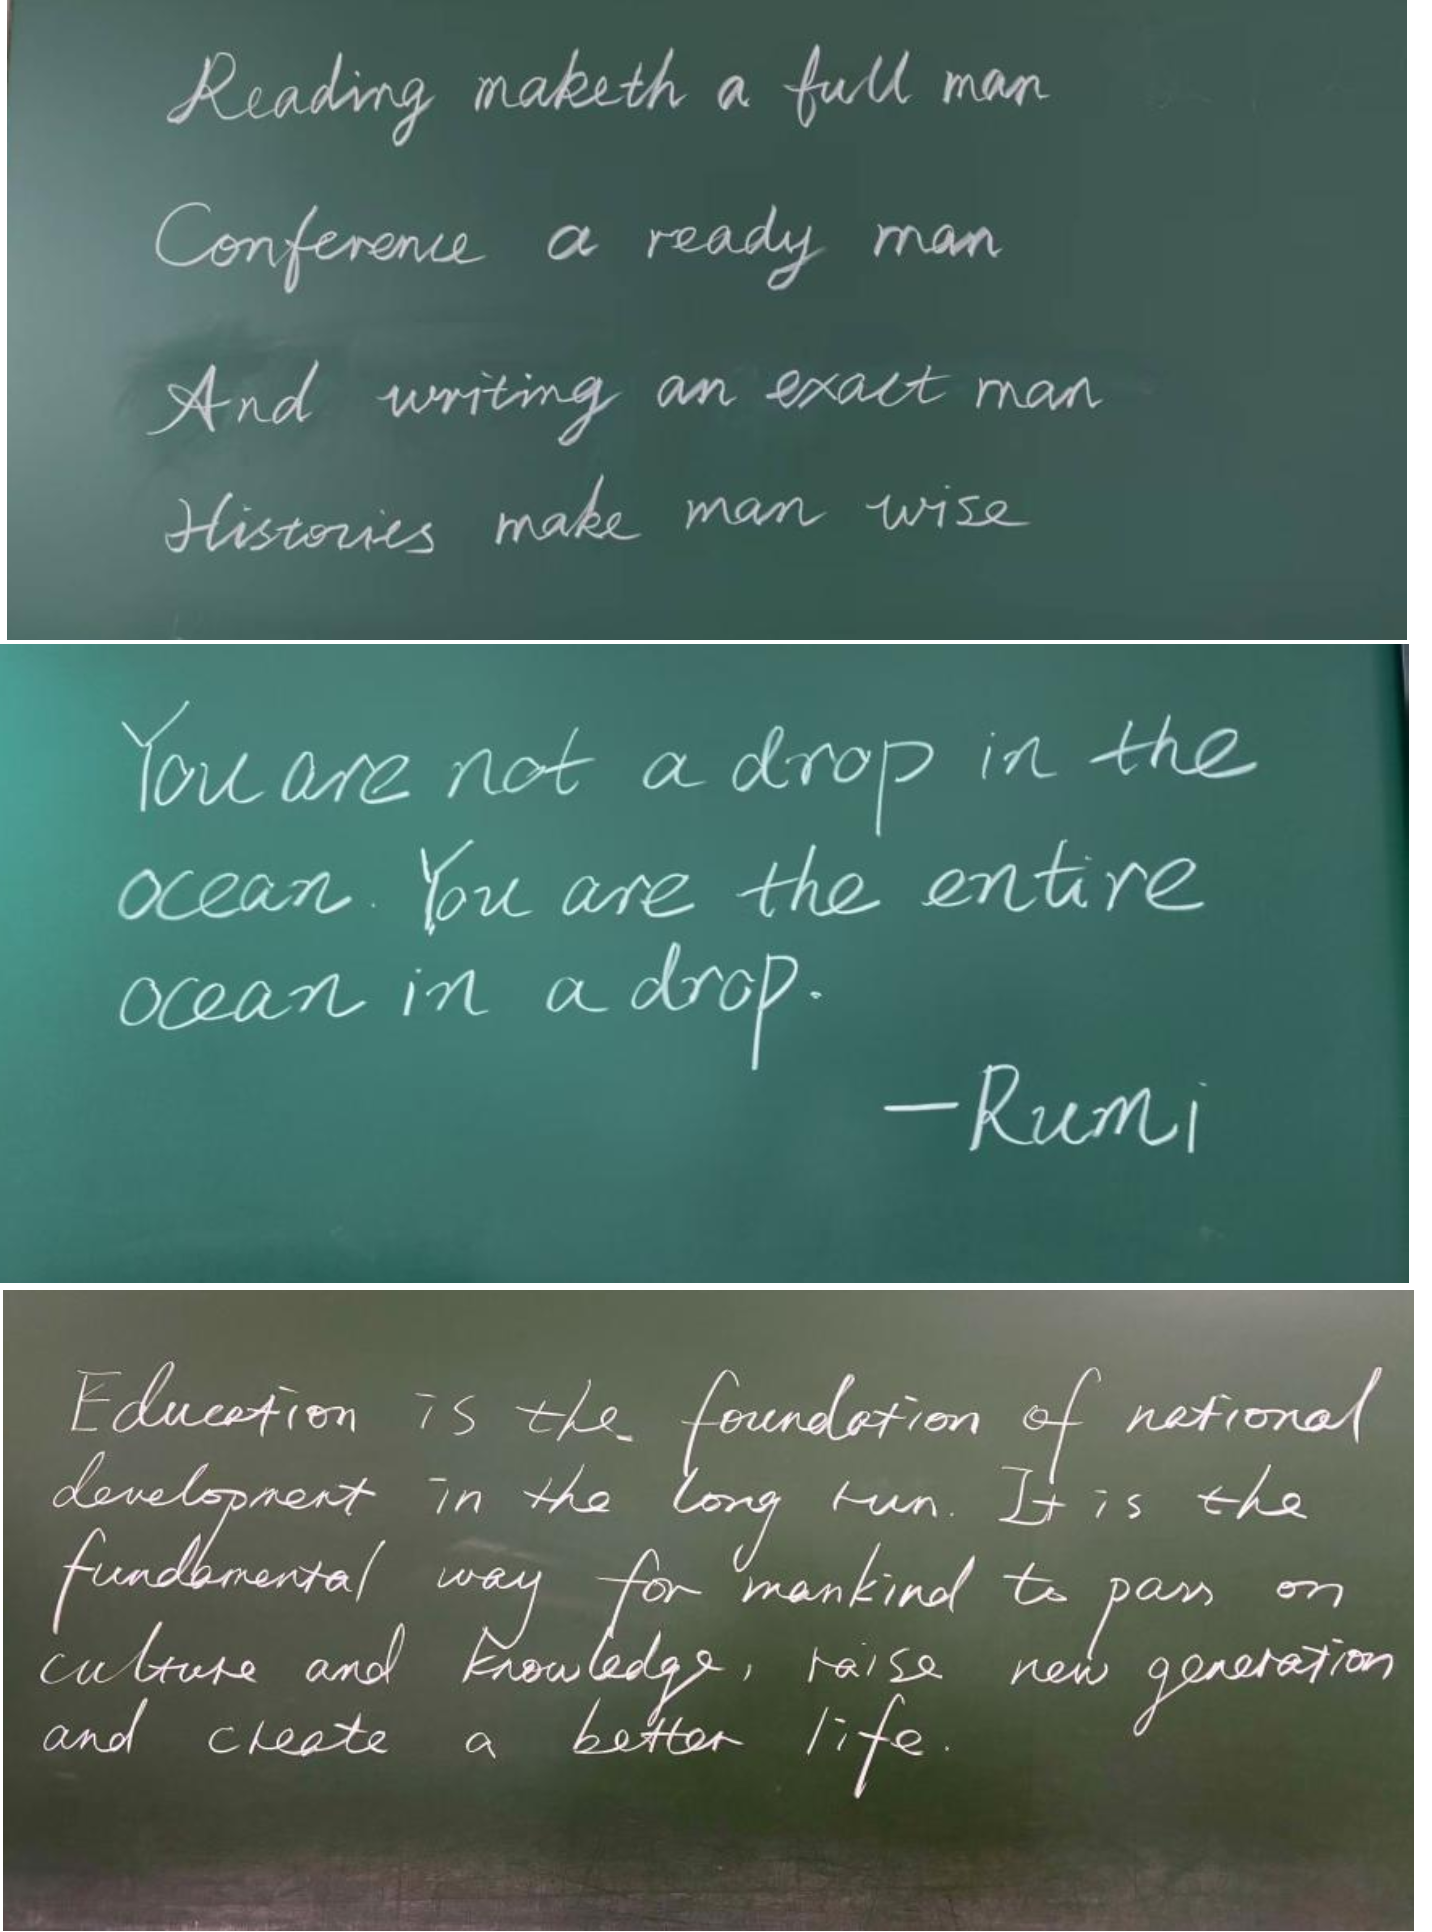 Reading maketh a full man
Conference a ready man
And writing an exact man
Histories make man wise
You are not a drop in the
ocean. You are the entire
ocean in a drop.
—Rumi
Education is the foundation of national
development in the long run. It is the
fundamental way for mankind to pass on
culture and knowledge, raise new generation
and create a better life.